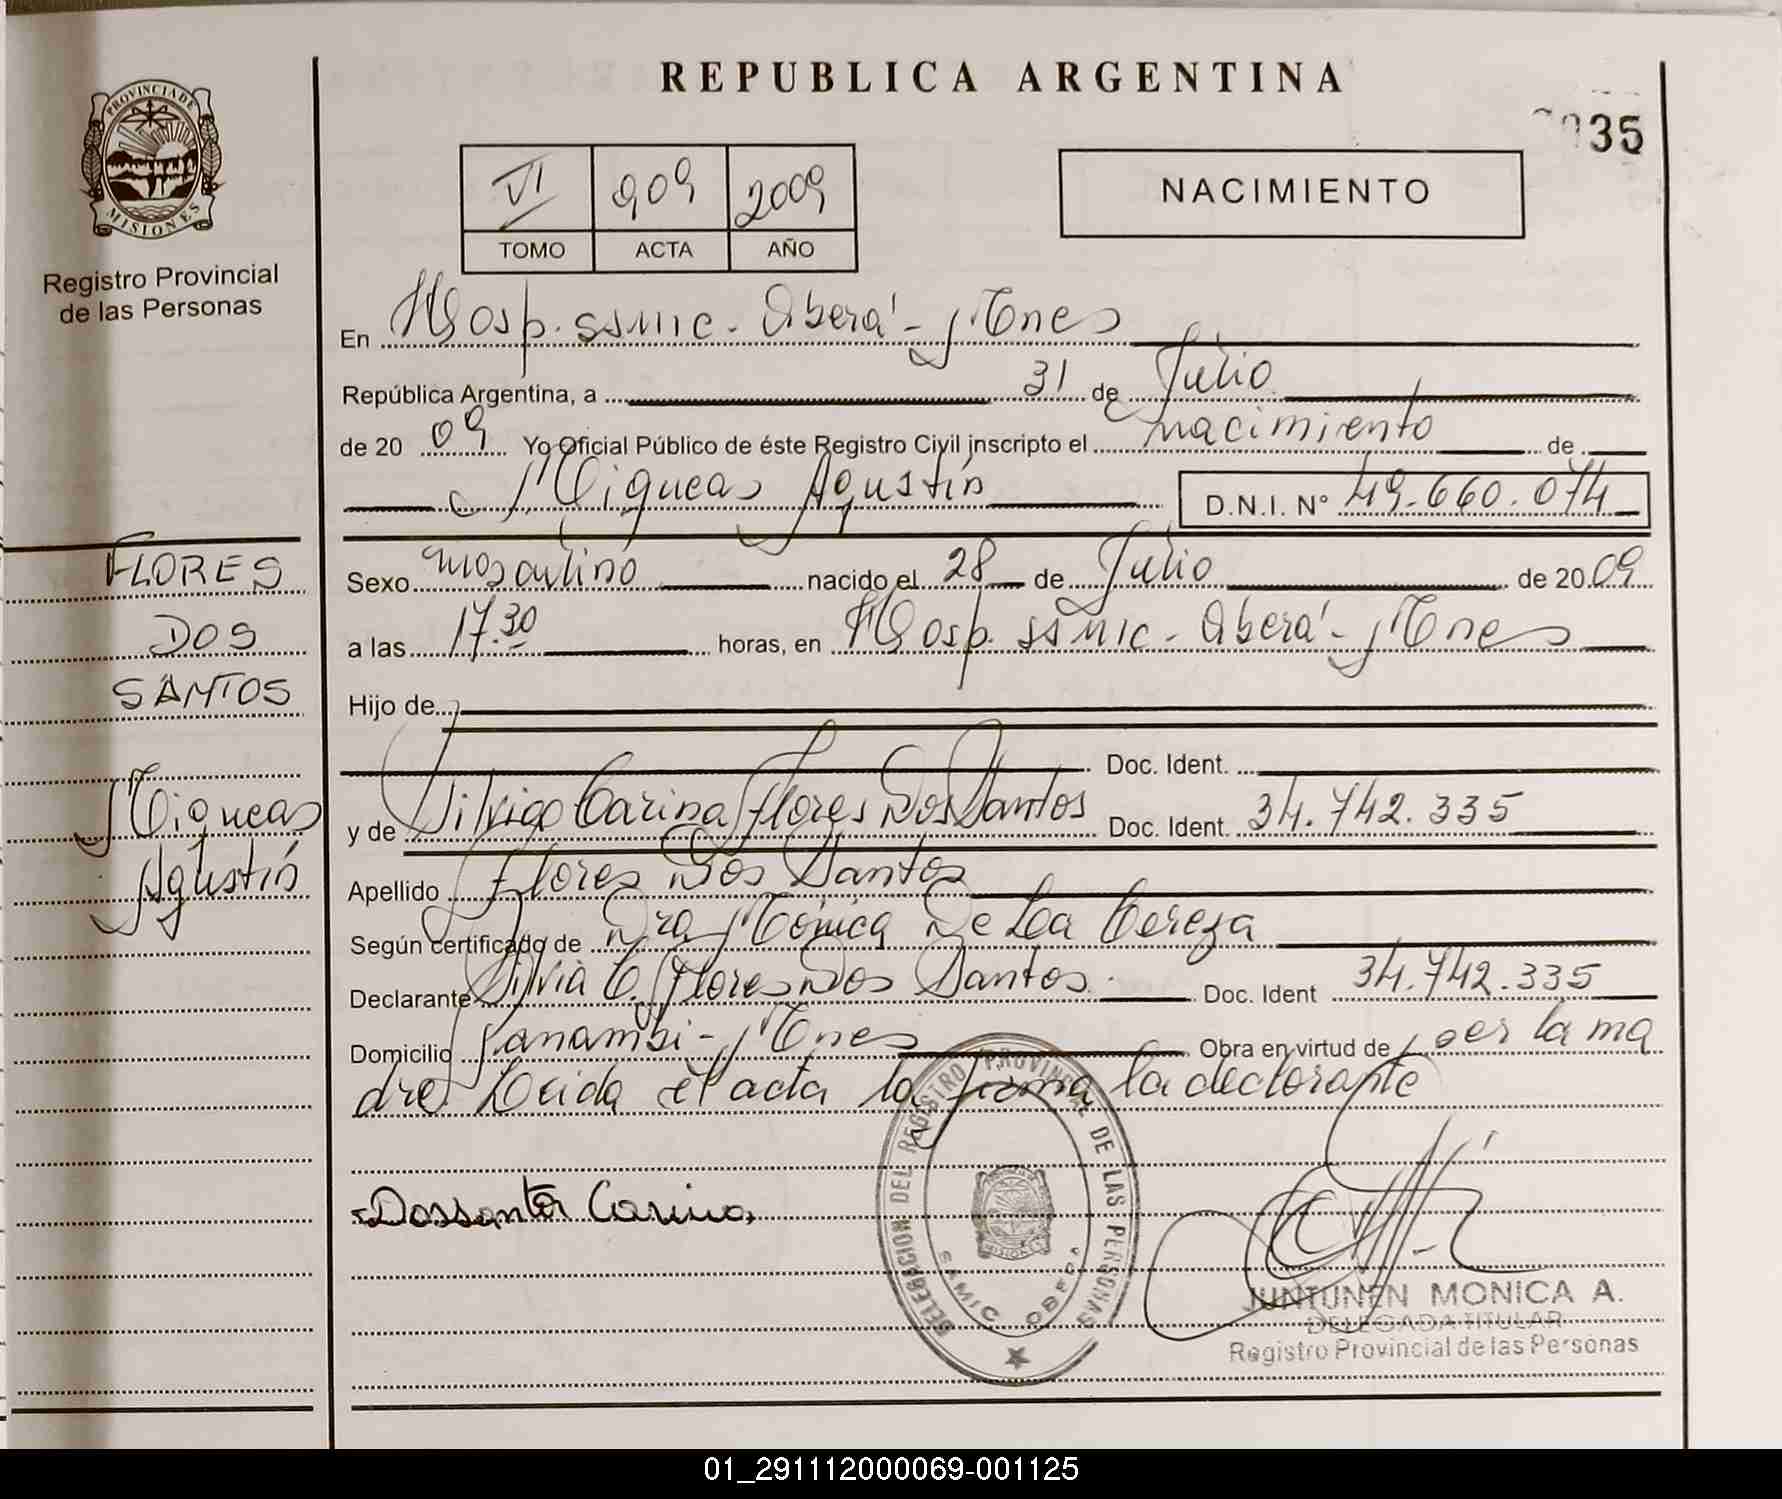 REPUBLICA ARGENTINA
35
PROVINCIA DE MISIONES
Registro Provincial
de las Personas
VI 909 2009
TOMO ACTA AÑO
NACIMIENTO
En Hosp. SSMIC - Oberá - Mnes
República Argentina, a 31 de Julio
de 20 09 Yo Oficial Público de éste Registro Civil inscripto el nacimiento de
Miqueas Agustín D.N.I. N° 49.660.074
FLORES
DOS
SANTOS
Miqueas
Agustín
Sexo masculino nacido el 28 de Julio de 20 09
a las 17.30 horas, en Hosp. SSMIC - Oberá - Mnes
Hijo de
Doc. Ident.
y de Carina Flores Dos Santos Doc. Ident. 34.742.335
Apellido Flores Dos Santos
Según certificado de Dra Mónica De La
Declarante Silvia C. Flores Dos Santos. Doc. Ident 34.742.335
Domicilio Panambi - Mnes Obra en virtud de ser la ma
dre. Leida el acta la firma la declarante
Dossantos Carina
DELEGACION DEL REGISTRO PROVINCIAL DE LAS PERSONAS
SAMIC OBERA
MISIONES
JUNTUNEN MONICA A.
DELEGADA TITULAR
Registro Provincial de las Personas
01_291112000069-001125